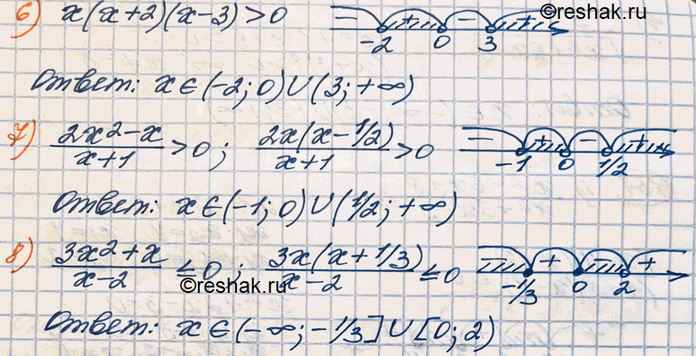 ©reshak.ru
6) x(x+2)(x-3)>0 − + − + -2 0 3
Ответ: x∈(-2;0)∪(3;+∞)
7) (2x²-x)/(x+1)>0; 2x(x-1/2)/(x+1)>0 − + − + -1 0 1/2
Ответ: x∈(-1;0)∪(1/2;+∞)
8) (3x²+x)/(x-2)≤0; 3x(x+1/3)/(x-2)≤0 − + − + -1/3 0 2
©reshak.ru
Ответ: x∈(-∞;-1/3]∪[0;2)